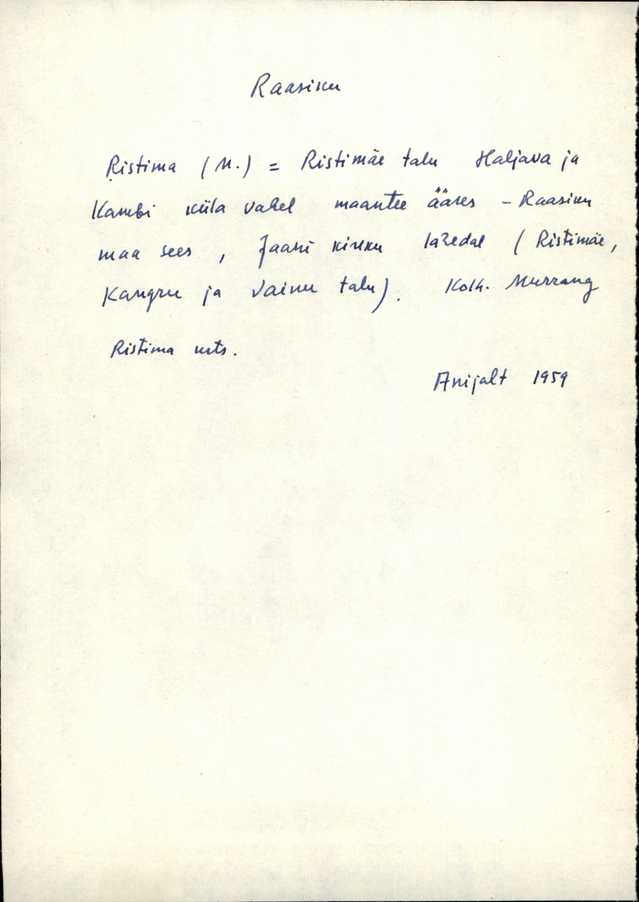 Raasiku
Ristima (M.) = Ristimäe talu Haljava ja
Kambi küla vahel maantee ääres – Raasiku
maa sees, Jaani kiriku lähedal (Ristimäe,
Kangru ja Vainu talu). Kolh.
Ristima mts.
Anijalt 1959